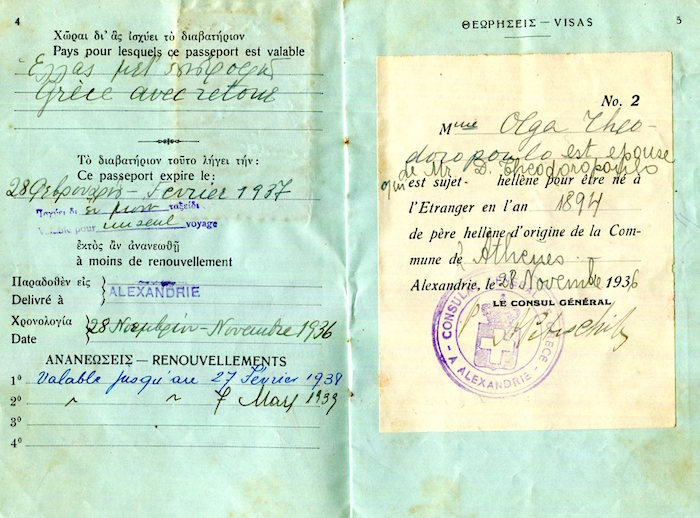 4
Χῶραι δι' ἃς ἰσχύει τὸ διαβατήριον
Pays pour lesquels ce passeport est valable
Ελλας μετ' επιστροφῆς
Grèce avec retour
Τὸ διαβατήριον τοῦτο λήγει τήν:
Ce passeport expire le:
28 Φεβρουαρίου - Fevrier 1937
Ἰσχύει δι' ἓν μόνον ταξείδι
Valable pour un seul voyage
ἐκτὸς ἂν ἀνανεωθῇ
à moins de renouvellement
Παραδοθὲν εἰς
Delivré à
ALEXANDRIE
Χρονολογία
Date
28 Νοεμβρίου - Novembre 1936
ΑΝΑΝΕΩΣΕΙΣ — RENOUVELLEMENTS
1º Valable jusqu'au 27 Février 1938
2º " " 7 Mars 1939
3º
4º
ΘΕΩΡΗΣΕΙΣ — VISAS
5
No. 2
Mme Olga Theo-
doropoulo est epouse
de Mr. D. Theodoropoulo
qui est sujet hellène pour être né à
l'Etranger en l'an 1894
de père hellène d'origine de la Com-
mune de Athènes
Alexandrie, le 28 Novembre 1936
LE CONSUL GÉNÉRAL
CONSULAT GRECE
A ALEXANDRIE